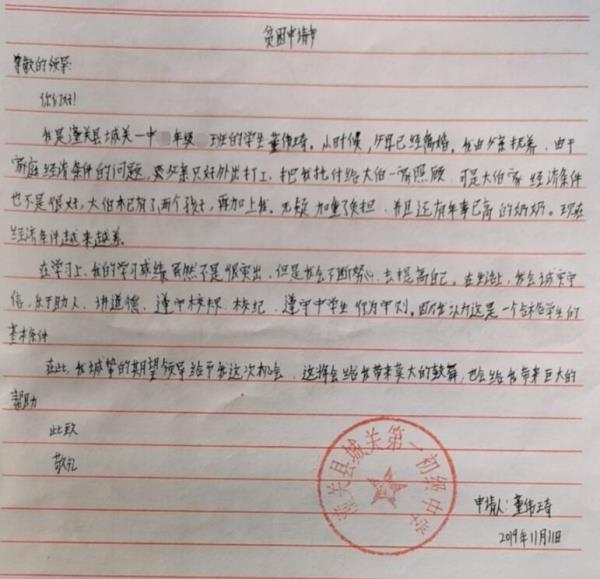 贫困申请书
尊敬的领导:
你们好!
我是潼关县城关一中 年级 班的学生董伟琦。小时候,父母已经离婚。我由父亲抚养,由于
家庭经济条件的问题,父亲只好外出打工,把我托付给大伯一家照顾,可是大伯家经济条件
也不是很好。大伯本已有了两个孩子,再加上我。无疑加重了负担,并且还有年事已高的奶奶。现在
经济条件越来越差。
在学习上,我的学习成绩虽然不是很突出,但是我会不断努力,去提高自己。在生活上,我会诚实守
信,乐于助人,讲道德,遵守校规、校纪,遵守中学生行为守则。因为我认为这是一个合格学生的
基本条件
在此,我诚挚的期望领导给予我这次机会,这将会给我带来莫大的鼓舞,也会给我带来巨大的
帮助
此致
敬礼
潼关县城关第一初级中学
申请人:董伟琦
2019年11月11日